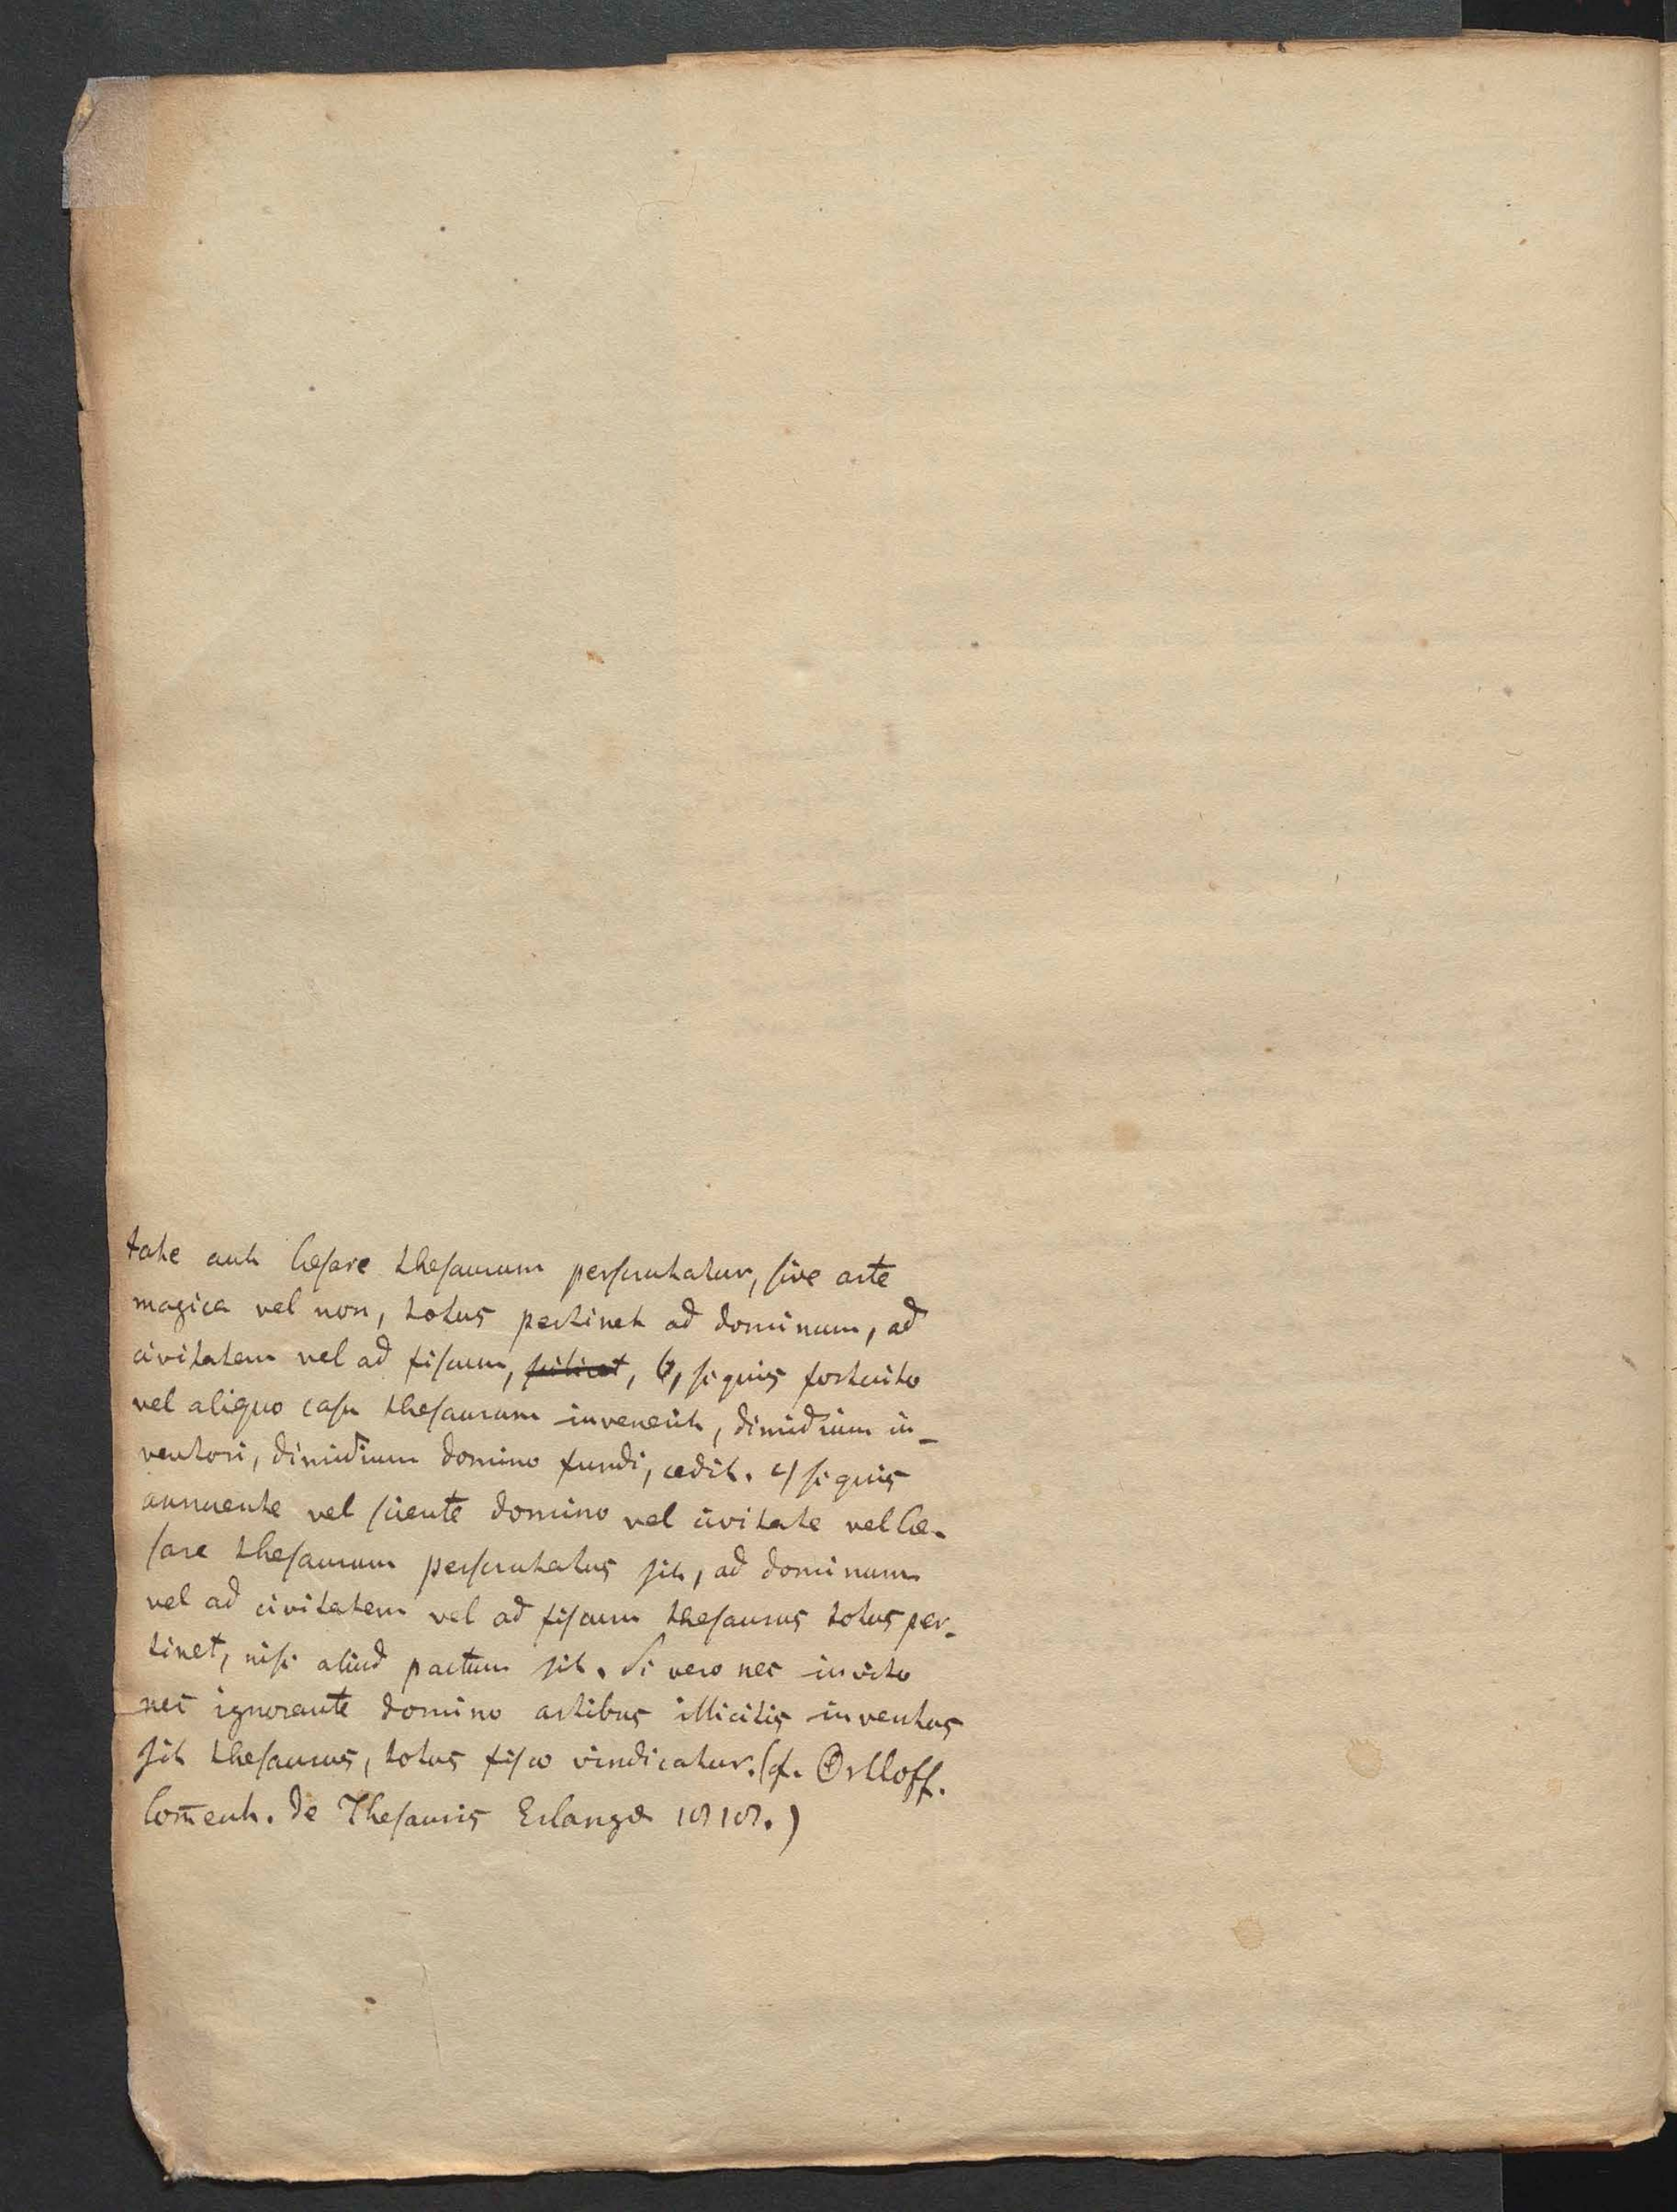 tate aut Cæsare thesaurum perscrutatur, sive arte
magica vel non, totus pertinet ad dominum, ad
civitatem vel ad fiscum, ~~scilicet~~, b, si quis fortuito
vel aliquo casu thesaurum invenerit, dimidium in-
ventori, dimidium domino fundi, cedit. c) si quis
annuente vel sciente domino vel civitate vel Cæ-
sare thesaurum perscrutatus sit, ad dominum
vel ad civitatem vel ad fiscum thesaurus totus per-
tinet, nisi aliud pactum sit. Si vero nec invito
nec ignorante domino artibus illicitis inventus
sit thesaurus, totus fisco vindicatur. (cf. Ortloff.
Com̄ent. de Thesauris Erlangæ 1818.)